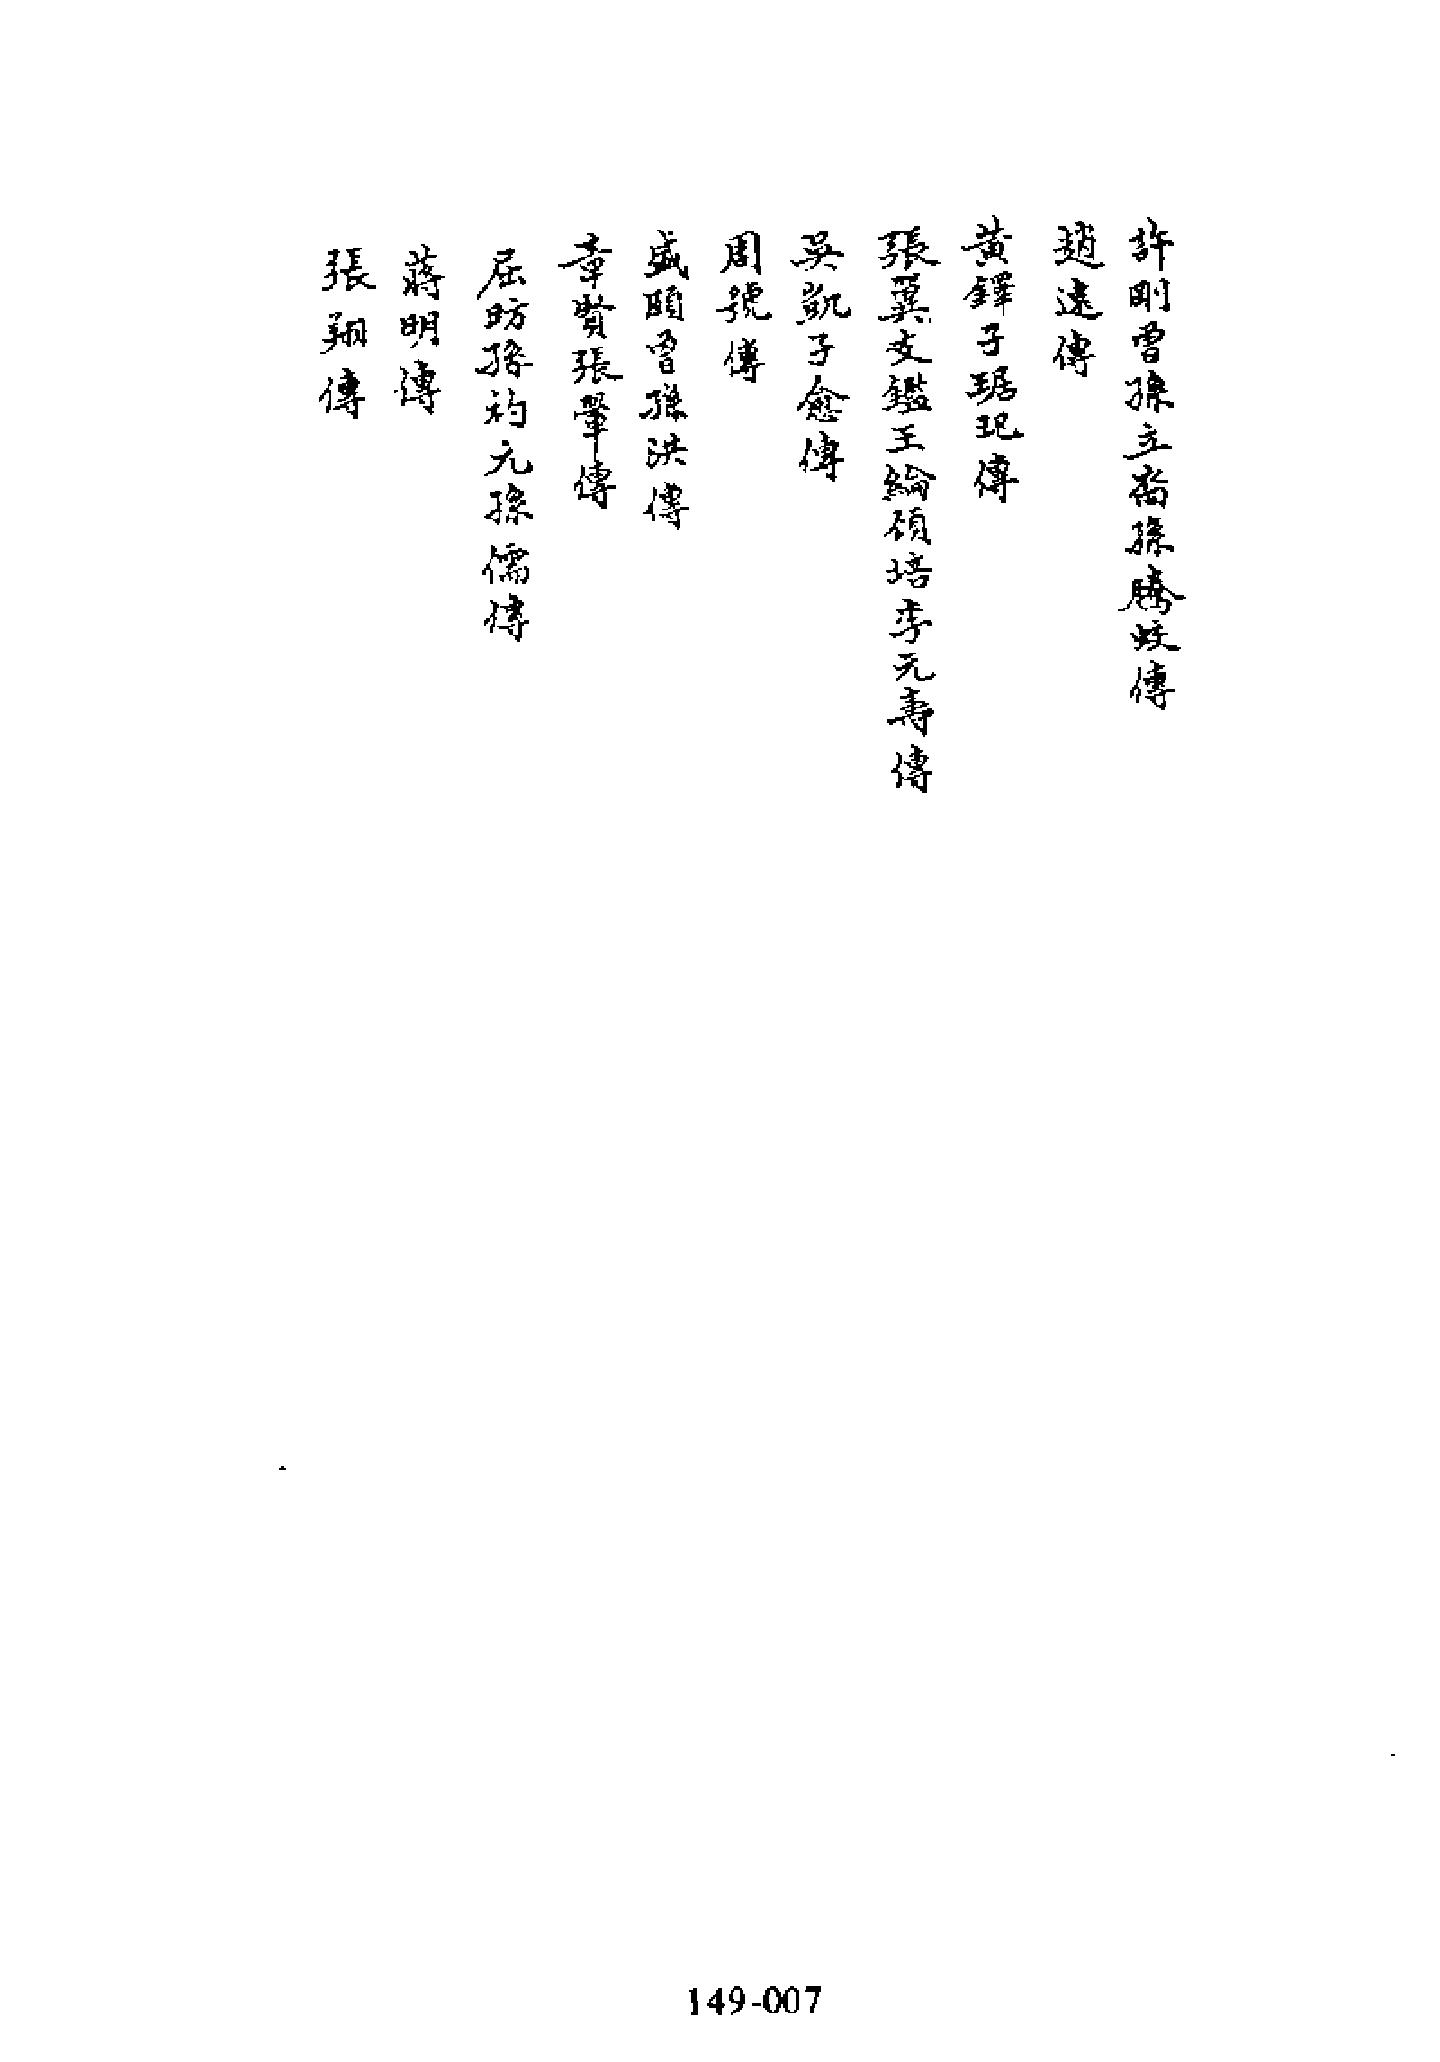 許剛曾孫立喬孫騰蛟傳
趙遠傳
黃鐸子琚玘傳
張翼支鑑王綸碩培李元壽傳
吳凱子愈傳
周號傳
盛頤曾孫洪傳
章賢張肇傳
屈昉孫礿元孫儒傳
蔣明傳
張翔傳
149-007